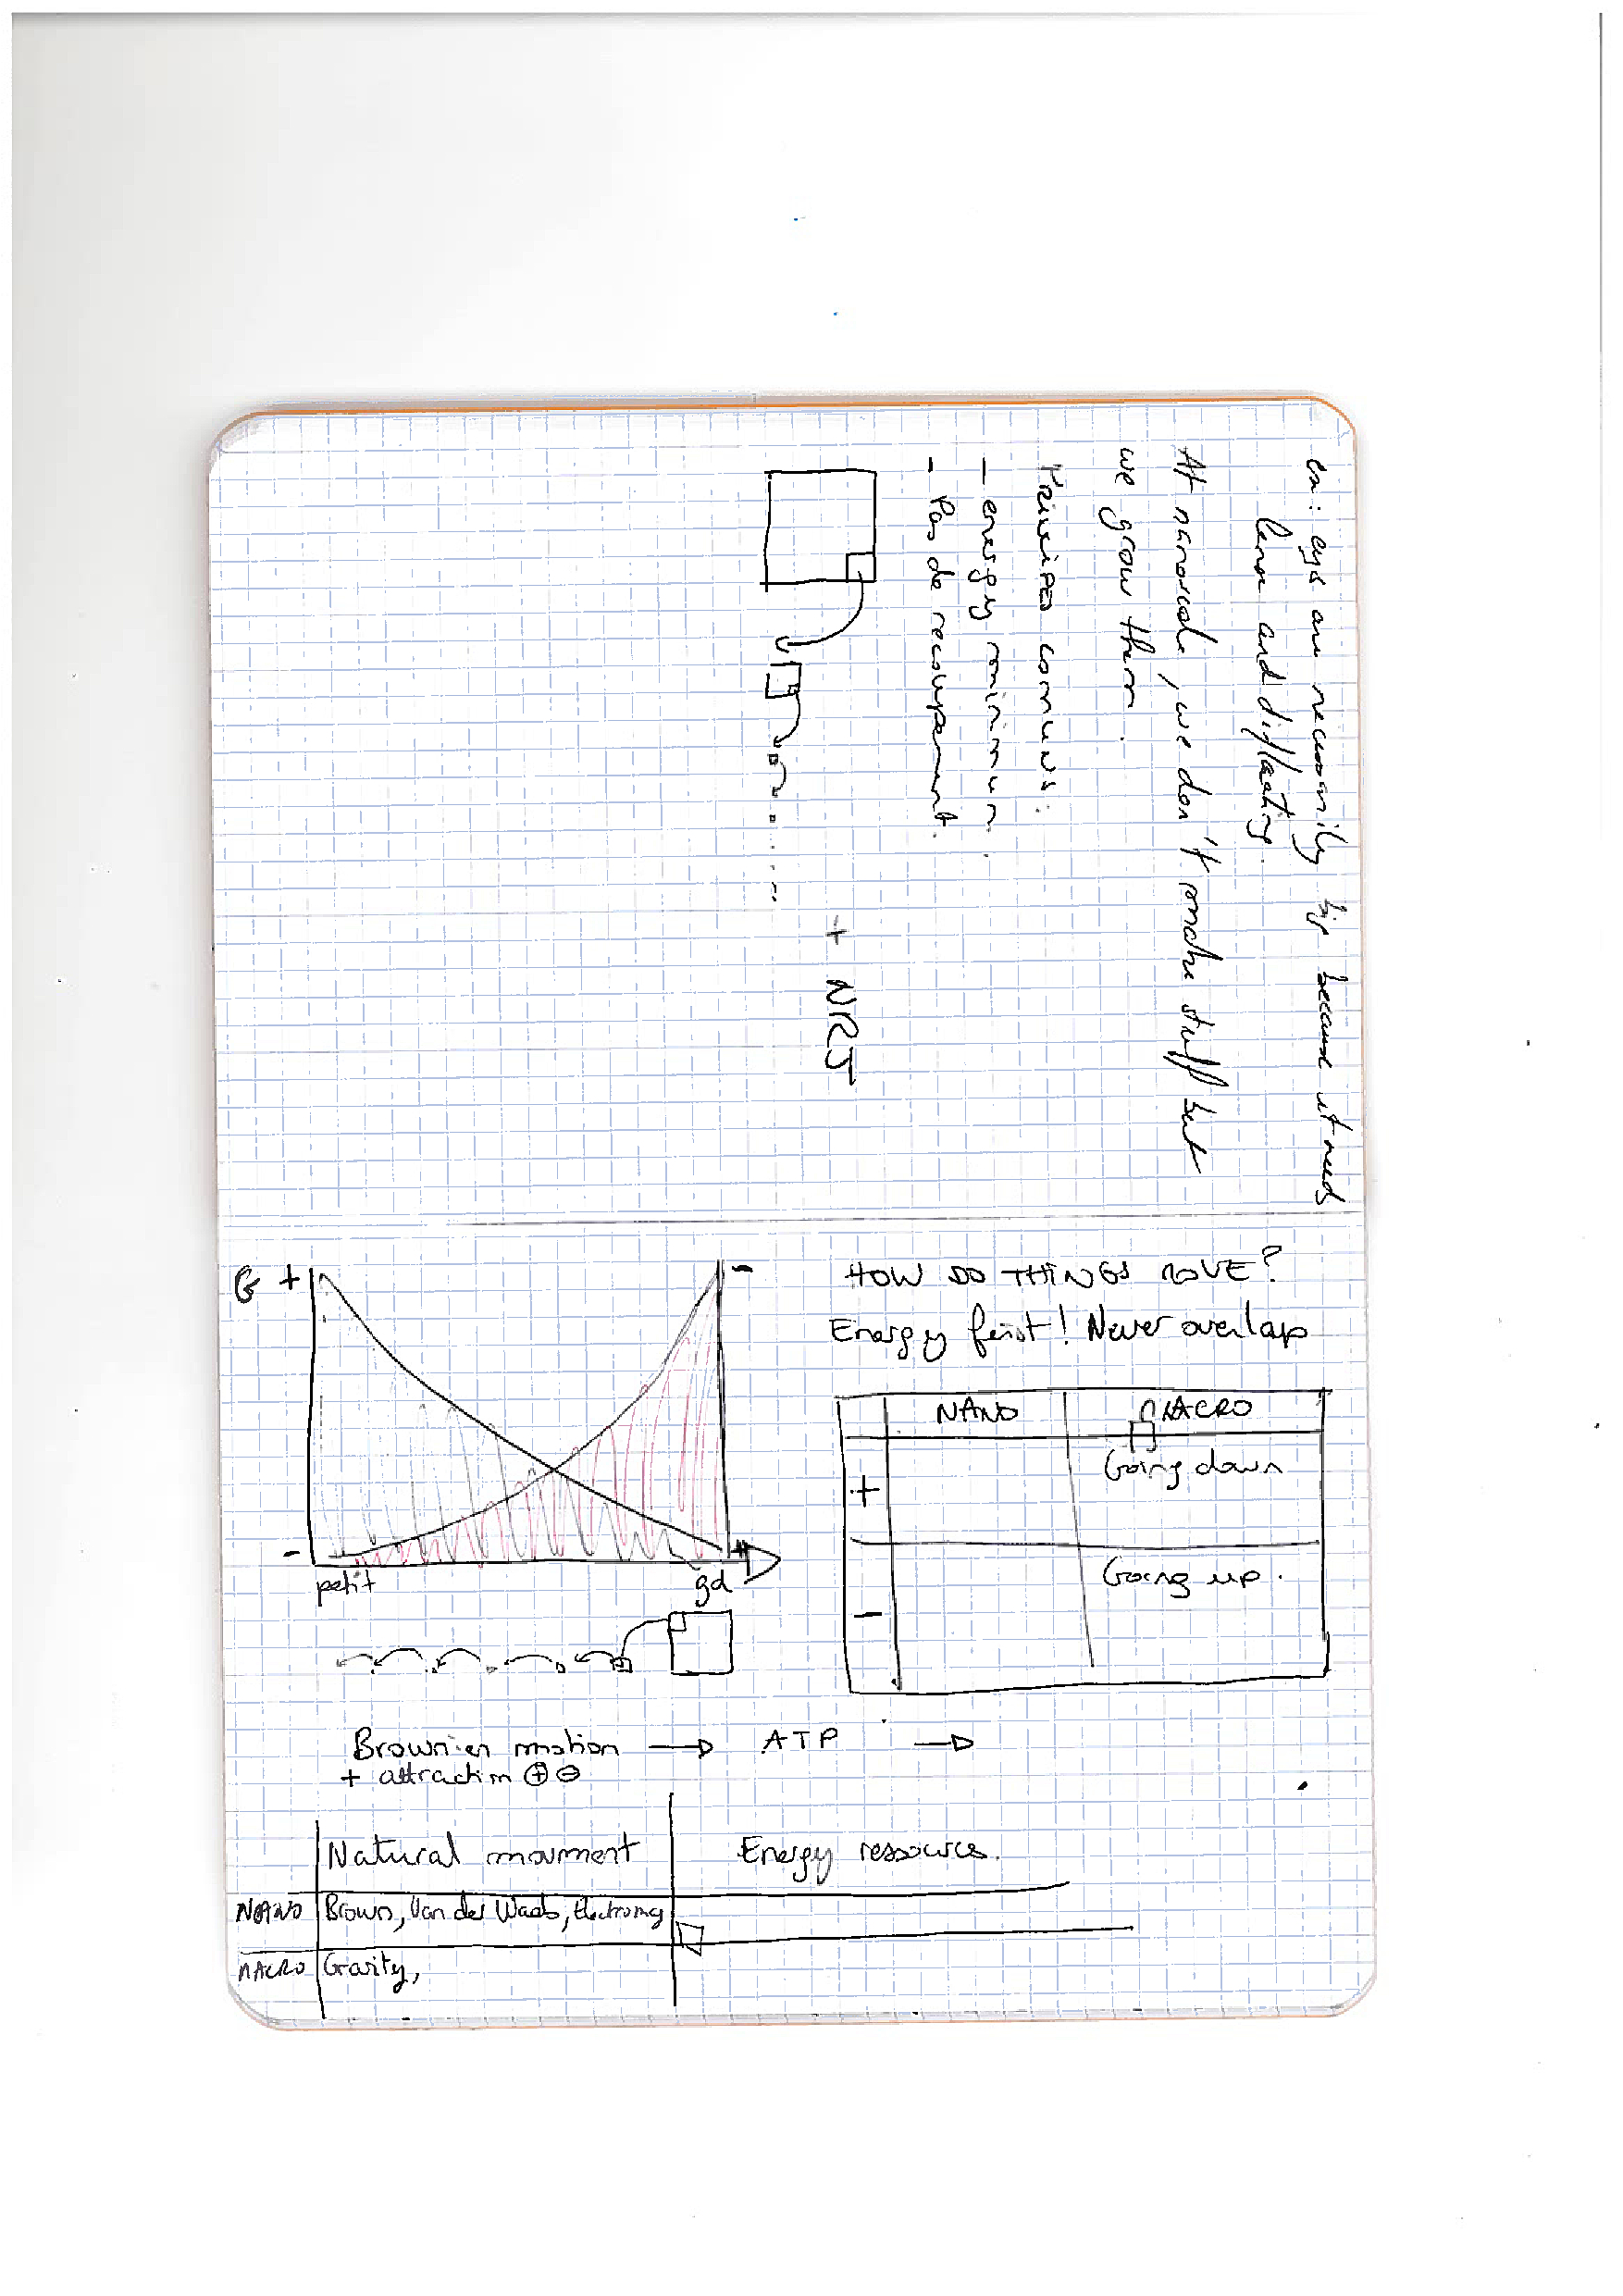 ex: eyes are necessarily big because it needs
lense and diffracting.
At nanoscale, we don't make stuff but
we grow them.
Principes communs:
- energy minimum.
- Pas de recoupement.
+ NRJ
HOW DO THINGS MOVE?
Energy first! Never overlap
NANO MACRO
+ Going down
- Going up.
+ -
-
petit gd
Brownien motion → ATP →
+ attraction ⊕ ⊖
Natural movment Energy ressource.
NANO Brown, Van der Waals,
MACRO Gravity,